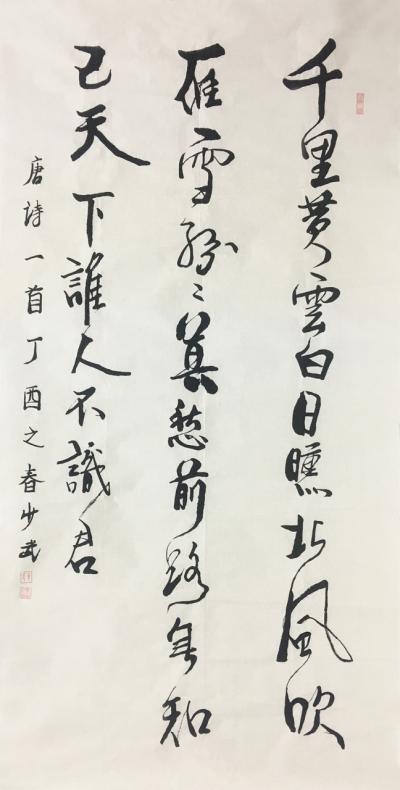 千里黄雲白日曛北風吹
雁雪紛〻莫愁前路無知
己天下誰人不識君
唐詩一首丁酉之春少武